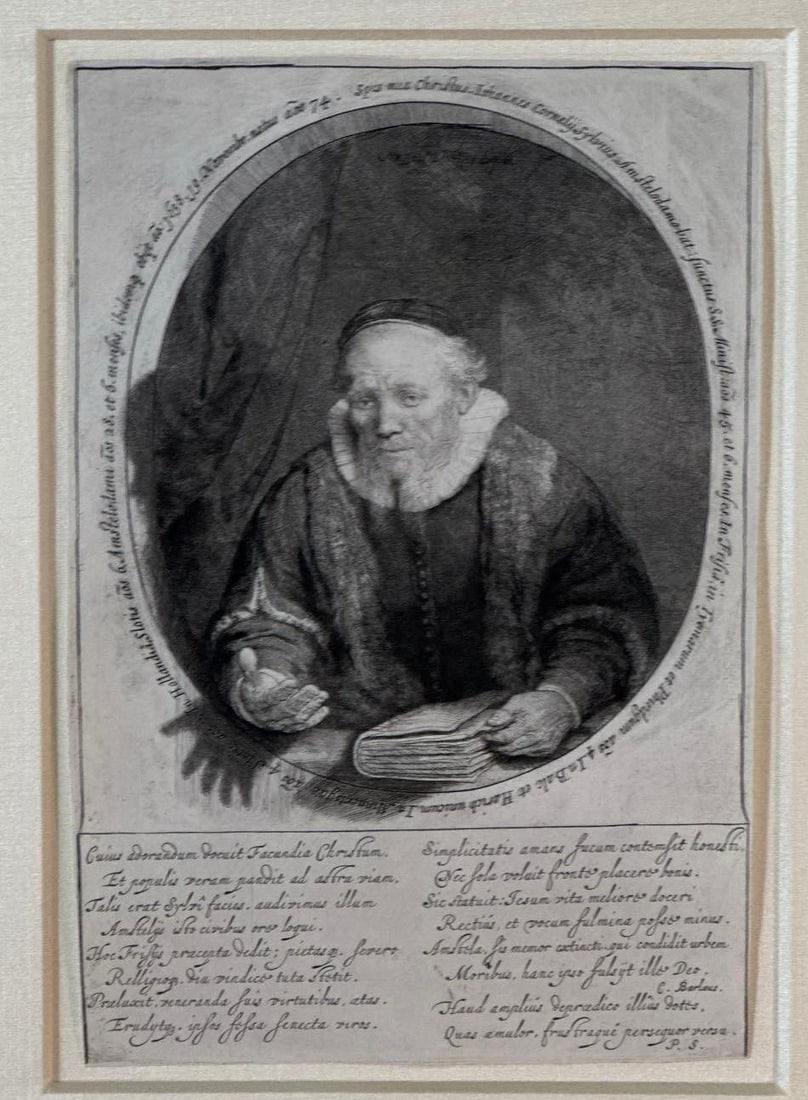 Spes mea Christus. Iohannes Cornelij Sylvius, Amstelodamobat: functus S.S. Minist. aōs 45. et 6. menses. In Frisiâ; in Tyemarum et Phirdgum aōs 4. In Balc et Harich unicum. In Minnertsgae aōs 4. Slotis aōs In Hollandiâ, Slotis aōs 6. Amstelodami aōs 28. et 6. menses, ibidemq. obijt aō. 1638. 19. Novembr. natus aōs 74.
Cuius adorandum docuit Facundia Christum,
Et populis veram pandit ad astra viam,
Talis erat Sylvî facies. audivimus illum
Amstelijs isto civibus ore loqui.
Hoc Frisijs præcepta dedit; pietasq. severo
Relligioq. diu vindice tuta stetit.
Præluxit, veneranda suis virtutibus, ætas.
Erudytq. ipsos fessa senecta viros.
Simplicitatis amans fucum contemsit honesti,
Nec sola voluit fronte placere bonis.
Sic statuit: Iesum vita meliore doceri
Rectiùs, et vocum fulmina posse minus.
Amstela, sis memor extincti qui condidit urbem
Moribus, hanc ipso fulsijt ille Deo.
C. Barlæus.
Haud ampliùs deprædico illius dotes,
Quas æmulor, frustraque persequor versu.
P. S.